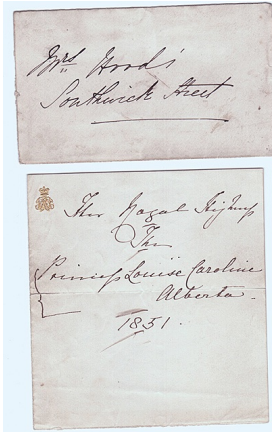 Mrs Hood's
Southwick Street
Her Royal Highness
The
Princess Louise Caroline
Alberta
1851.